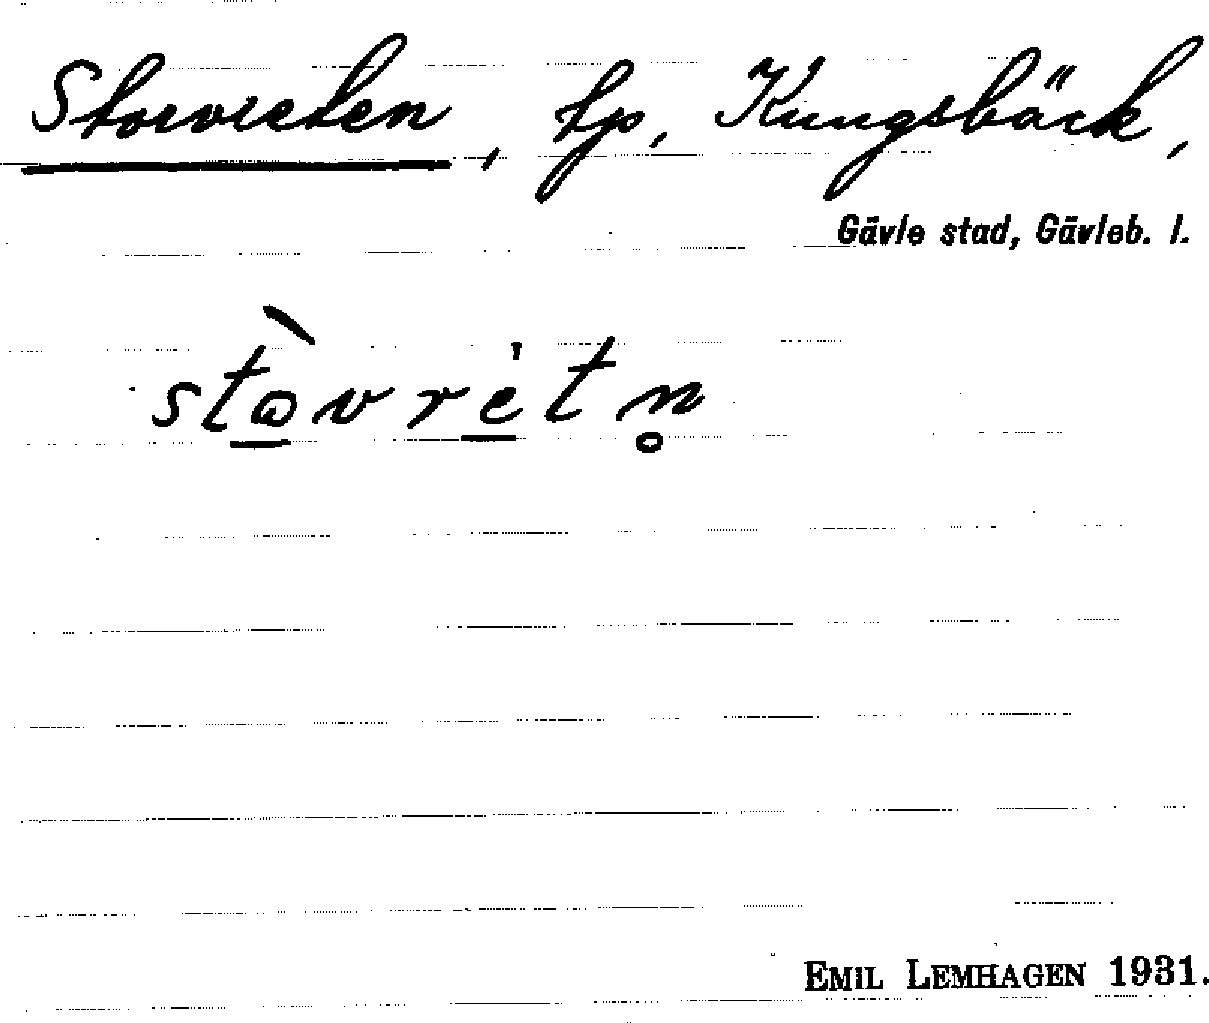 Storvreten, tp, Kungsbäck,
Gävle stad, Gävleb. l.
EMIL LEMHAGEN 1931.